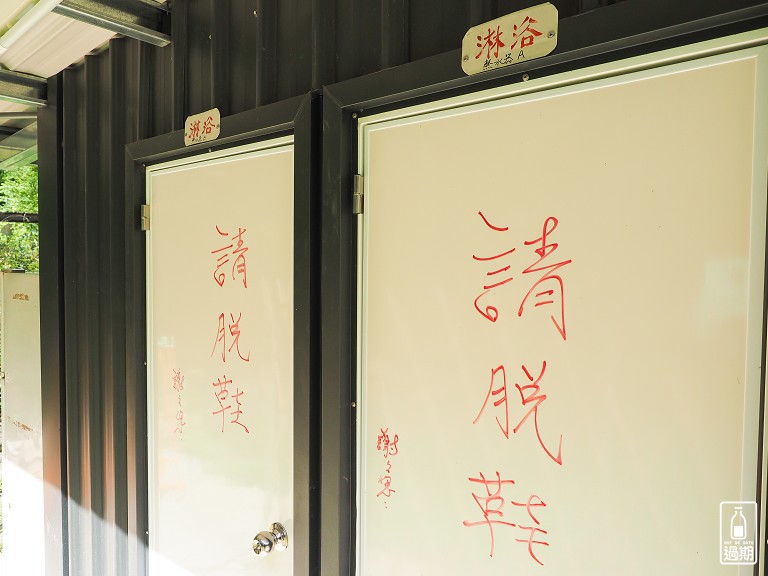 淋浴
淋浴
熱水器A
請脫鞋
謝謝您
請脫鞋
謝謝您
OUT OF DATE
過期